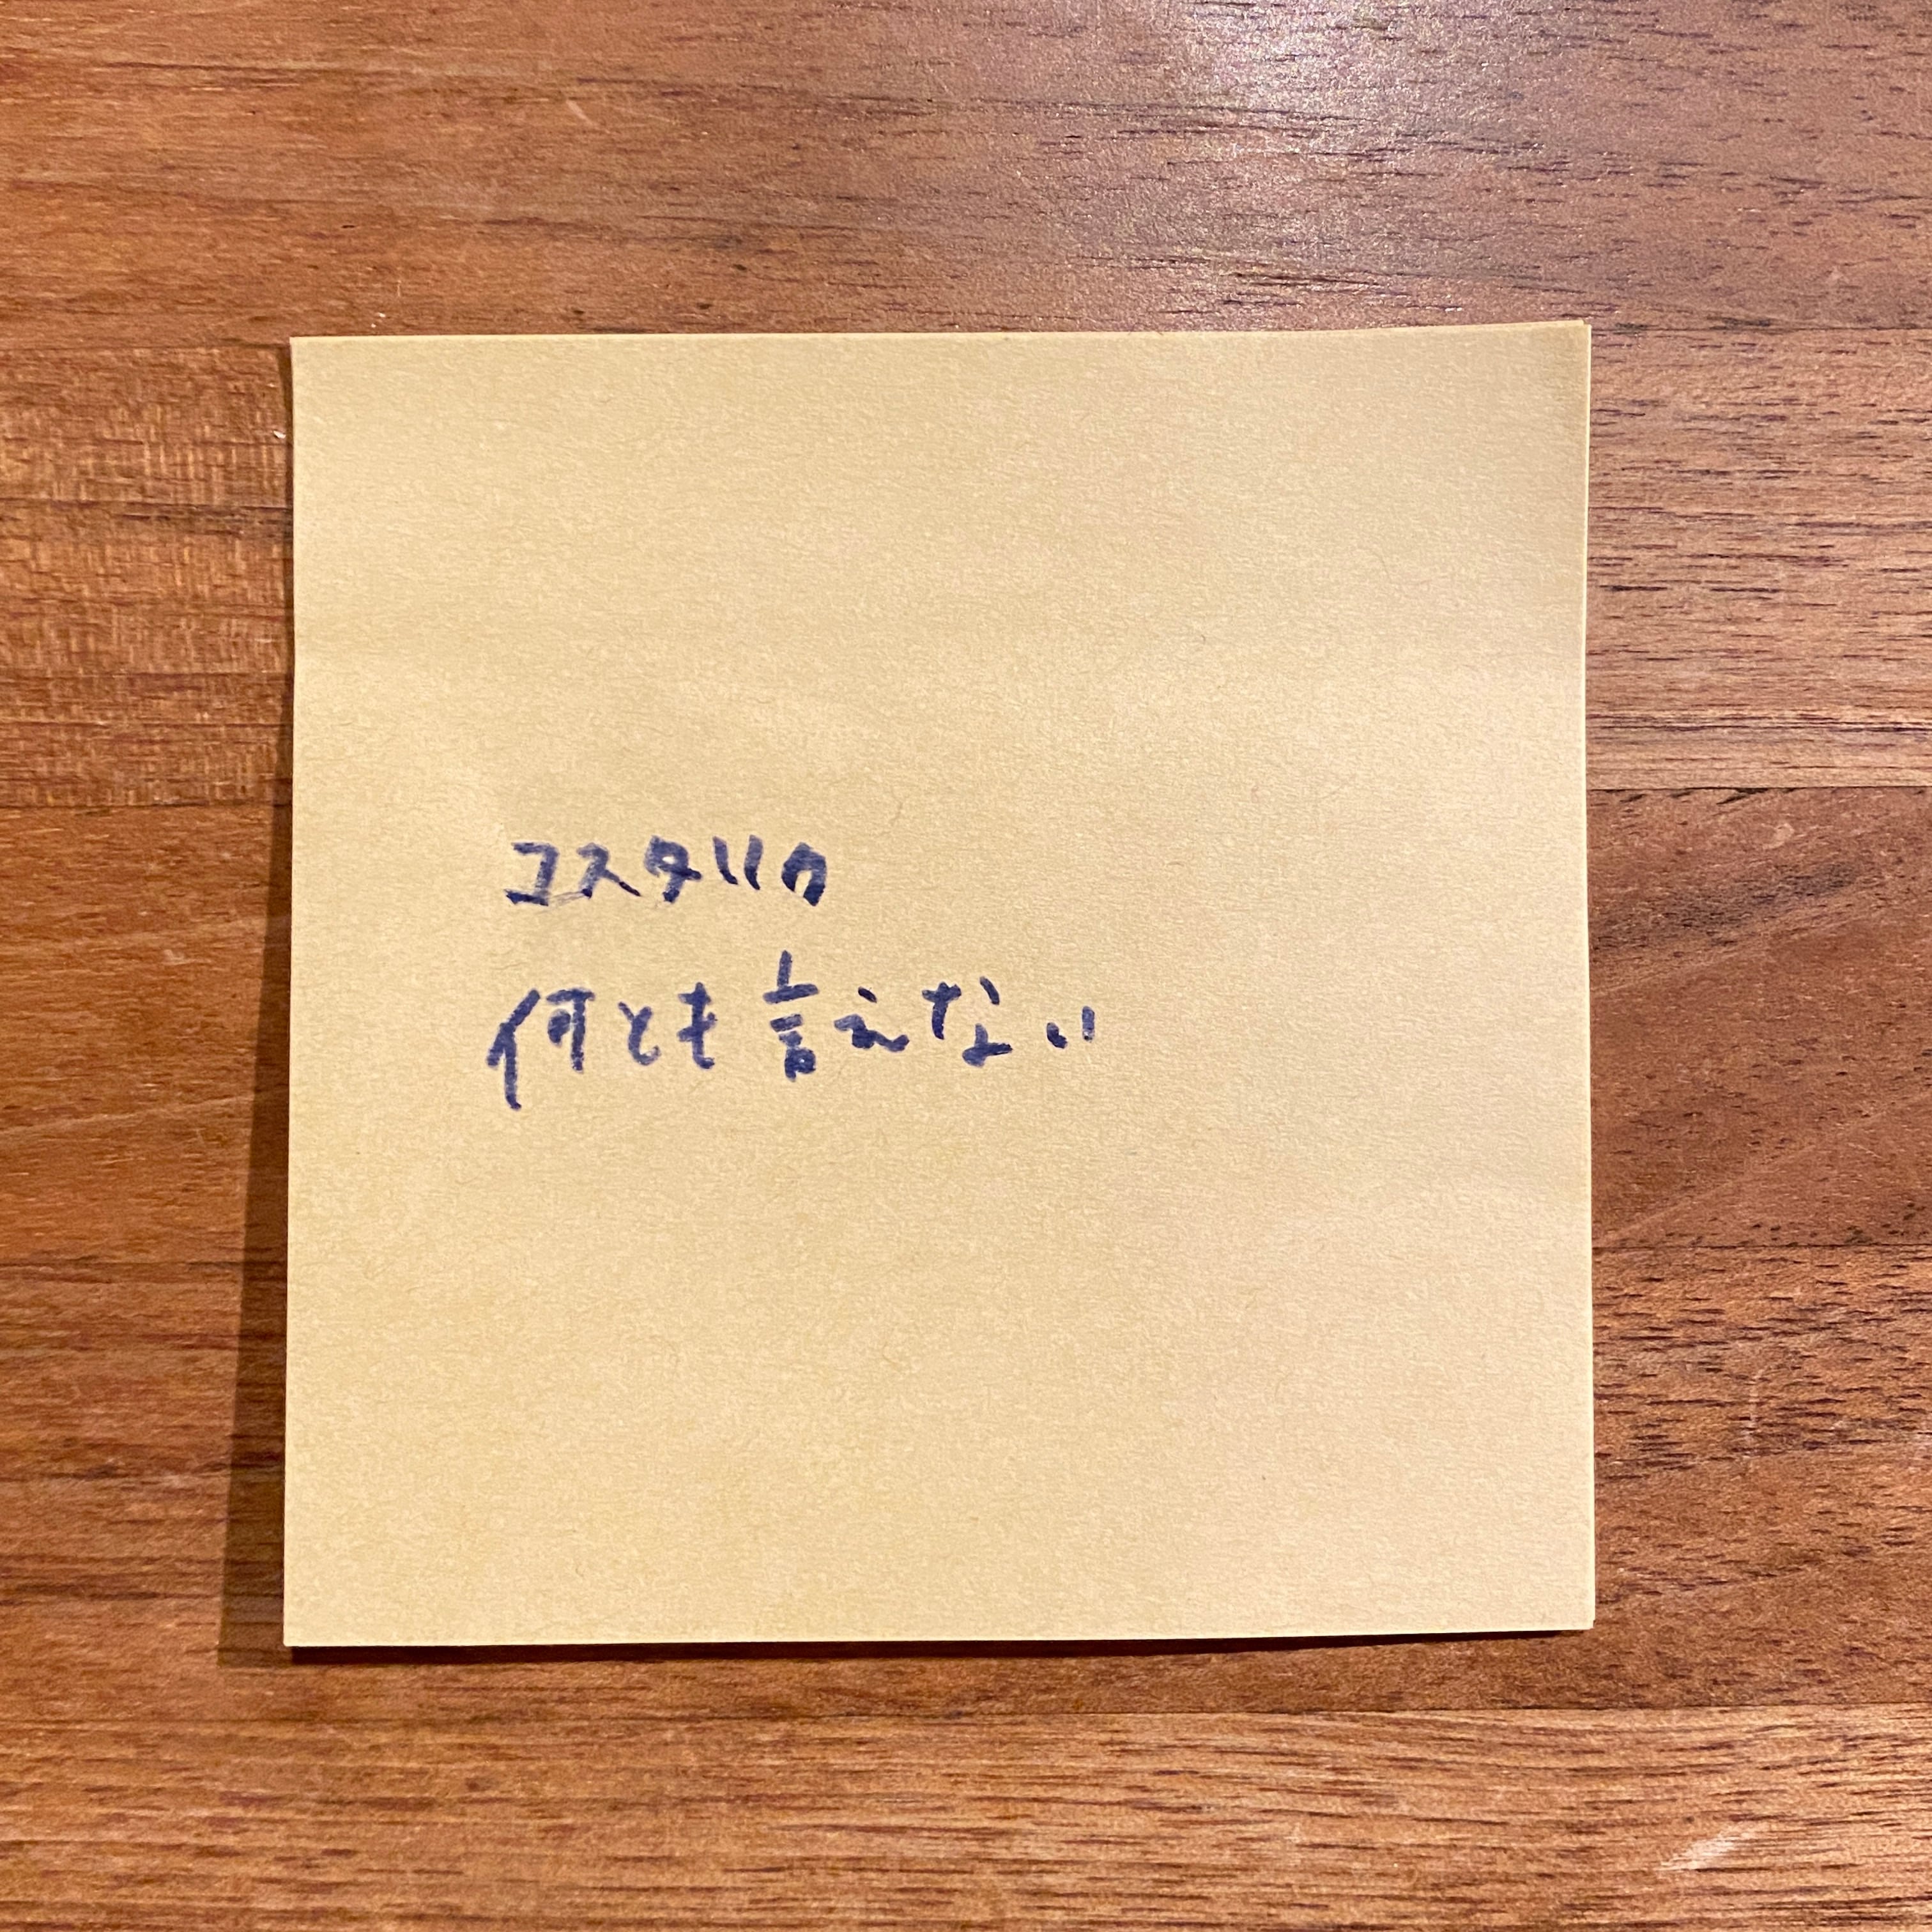 コスタリカ
何とも言えない